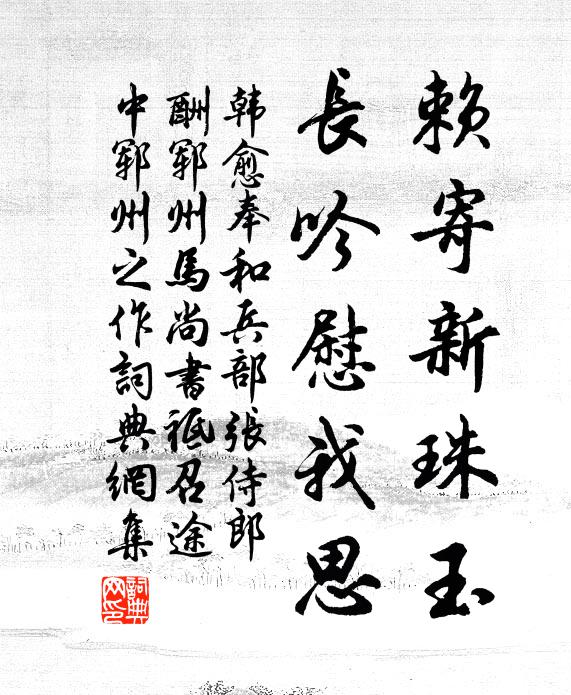 賴寄新珠玉
長吟慰我思
韩愈奉和兵部張侍郎
酬郓州馬尚書祗召途
中郓州之作詞典網集
詞典
网印